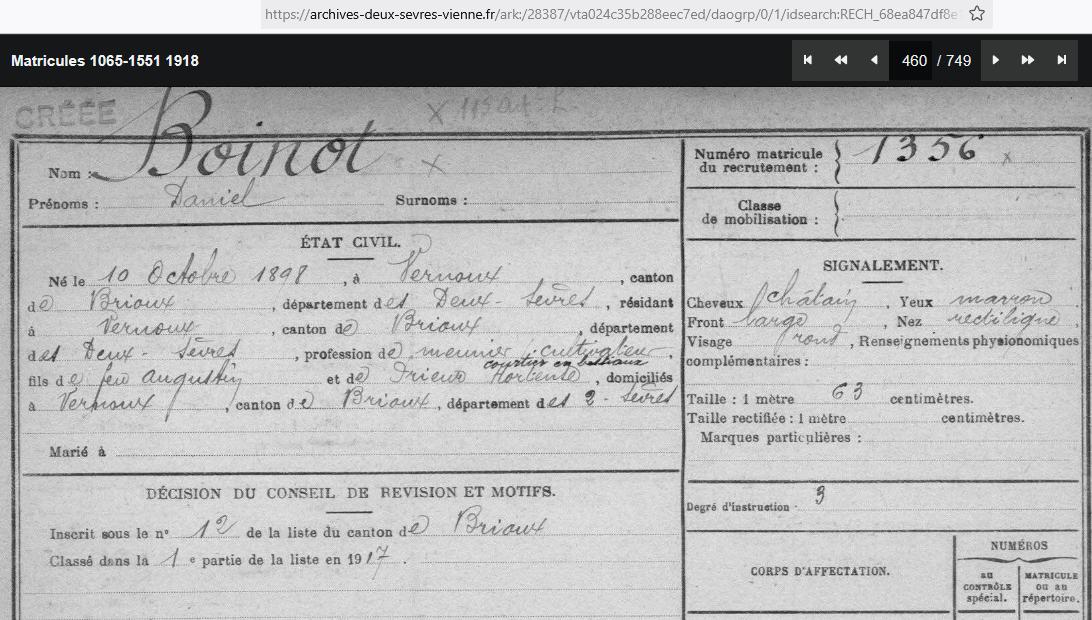 https://archives-deux-sevres-vienne.fr/ark:/28387/vta024c35b288eec7ed/daogrp/0/1/idsearch:RECH_68ea847df8e
Matricules 1065-1551 1918
460 / 749
CRÉÉE
Nom : Boinot X
Prénoms : Daniel Surnoms :
ÉTAT CIVIL.
Né le 10 Octobre 1898, à Vernoux, canton
de Brioux, département des Deux-Sèvres, résidant
à Vernoux, canton de Brioux, département
des Deux-Sèvres, profession de meunier cultivateur,
courtier en bestiaux
fils de feu Augustin et de Hortense, domiciliés
à Vernoux, canton de Brioux, département des 2-Sèvres
Marié à
DÉCISION DU CONSEIL DE REVISION ET MOTIFS.
Inscrit sous le n° 12 de la liste du canton de Brioux
Classé dans la 1e partie de la liste en 1917.
Numéro matricule
du recrutement : 1356 x
Classe
de mobilisation :
SIGNALEMENT.
Cheveux châtain, Yeux marron
Front large, Nez rectiligne,
Visage rond, Renseignements physionomiques
complémentaires :
Taille : 1 mètre 63 centimètres.
Taille rectifiée : 1 mètre centimètres.
Marques particulières :
Degré d'instruction : 3
CORPS D'AFFECTATION.
NUMÉROS
au
CONTRÔLE
spécial.
MATRICULE
ou au
répertoire.